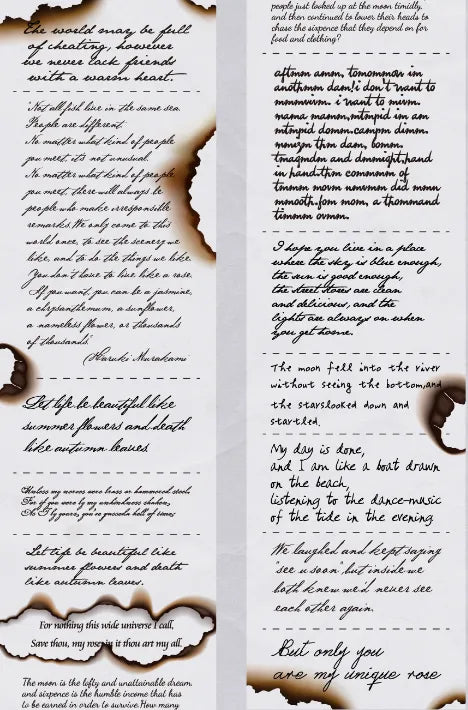 The world may be full
of cheating, however
we never lack friends
with a warm heart.
Not all fish live in the same sea.
People are different.
No matter what kind of people
you meet, it's not unusual.
No matter what kind of people
you meet, there will always be
people who make irresponsible
remarks. We only come to this
world once, to see the scenery we
like, and to do the things we like.
You don't have to live like a rose.
If you want, you can be a jasmine,
a chrysanthemum, a sunflower,
a nameless flower, or thousands
of thousands.
(Haruki Murakami
Let life be beautiful like
summer flowers and death
like autumn leaves
Unless my nerves were brass or hammered steel.
For if you were by my unkindness shaken,
As I by yours, you've passed a hell of time;
Let life be beautiful like
summer flowers and death
like autumn leaves.
For nothing this wide universe I call,
Save thou, my rose; in it thou art my all.
The moon is the lofty and unattainable dream
and sixpence is the humble income that has
to be earned in order to survive. How many
people just looked up at the moon timidly,
and then continued to lower their heads to
chase the sixpence that they depend on for
food and clothing?
i don't want to
i want to
hand
in hand
did
mom, a
I hope you live in a place
where the sky is blue enough,
the sun is good enough,
the street stores are clean
and delicious, and the
lights are always on when
you get home.
The moon fell into the river
without seeing the bottom, and
the stars looked down and
startled.
My day is done,
and I am like a boat drawn
on the beach,
listening to the dance-music
of the tide in the evening
We laughed and kept saying
"see u soon", but inside we
both knew we'd never see
each other again.
But only you
are my unique rose